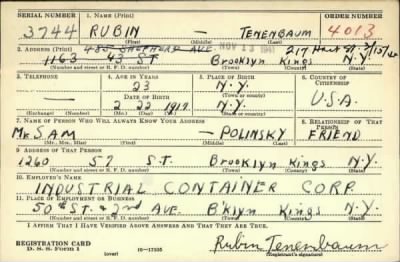 SERIAL NUMBER 1. NAME (Print) ORDER NUMBER
3744 RUBIN — TENENBAUM 4013
(First) (Middle) (Last)
2. ADDRESS (Print) 485 SHEPHERD AVE. NOV 13 1941 217
1163 43 ST Brooklyn Kings N.Y.
(Number and street or R. F. D. number) (Town) (County) (State)
3. TELEPHONE 4. AGE IN YEARS 5. PLACE OF BIRTH 6. COUNTRY OF CITIZENSHIP
— 23 N.Y.
DATE OF BIRTH (Town or county) U.S.A.
2 22 1917 N.Y.
(Exchange) (Number) (Mo.) (Day) (Yr.) (State or country)
7. NAME OF PERSON WHO WILL ALWAYS KNOW YOUR ADDRESS 8. RELATIONSHIP OF THAT PERSON
Mr. SAM — POLINSKY FRIEND
(Mr., Mrs., Miss) (First) (Middle) (Last)
9. ADDRESS OF THAT PERSON
1260 57 ST. Brooklyn Kings N.Y.
(Number and street or R. F. D. number) (Town) (County) (State)
10. EMPLOYER'S NAME
INDUSTRIAL CONTAINER CORP.
11. PLACE OF EMPLOYMENT OR BUSINESS
50th ST. & 2nd AVE. B'klyn Kings N.Y.
(Number and street or R. F. D. number) (Town) (County) (State)
I AFFIRM THAT I HAVE VERIFIED ABOVE ANSWERS AND THAT THEY ARE TRUE.
REGISTRATION CARD
D. S. S. FORM 1 (over) 16—17105 Rubin Tenenbaum
(Registrant's signature)